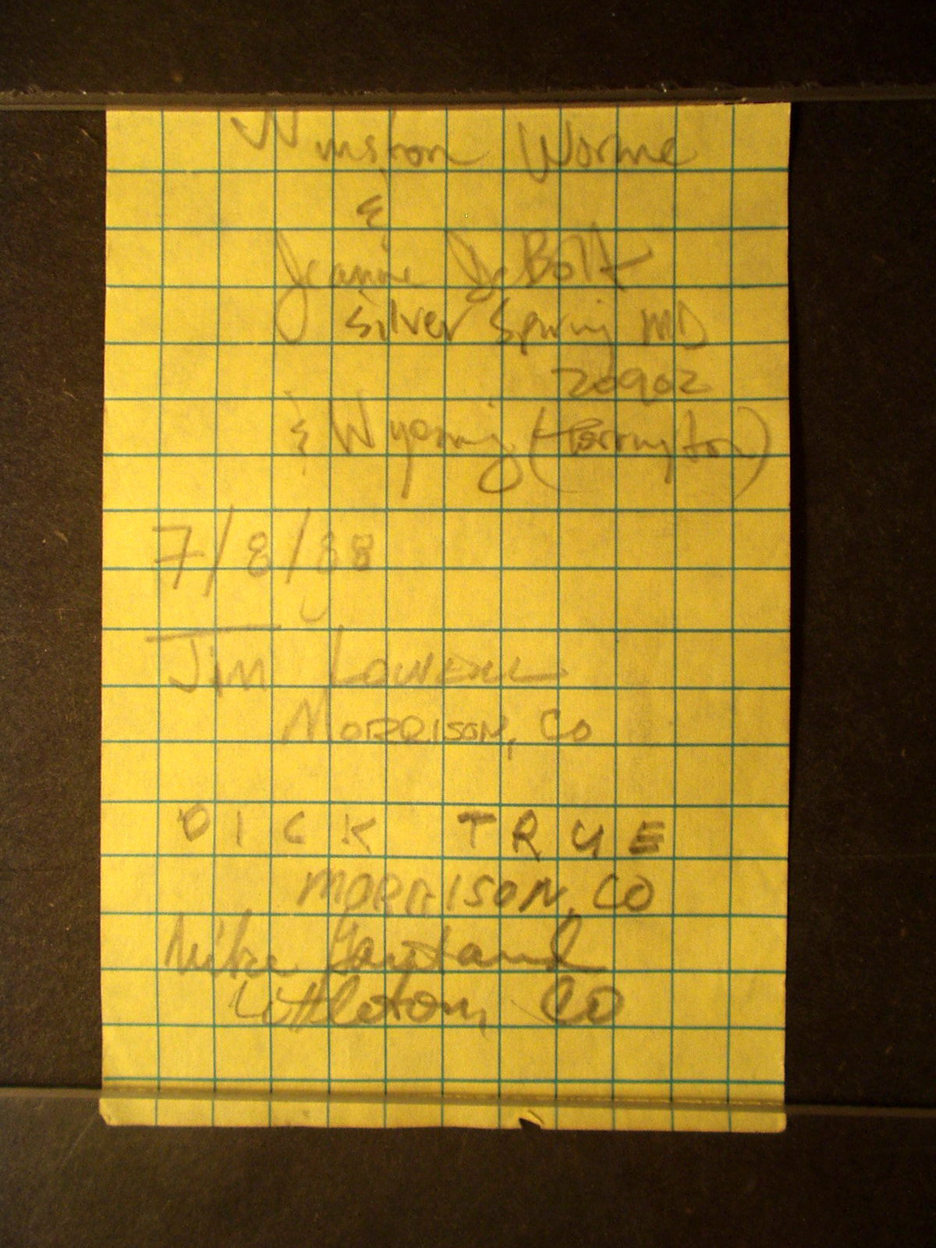 Winston Worme
&
Jeanne DeBolt
Silver Spring MD
20902
& Wyoming (Torrington)
7/8/88
Jim Lowell
MORRISON, CO
DICK TRUE
MORRISON, CO
Mike
Littleton, CO